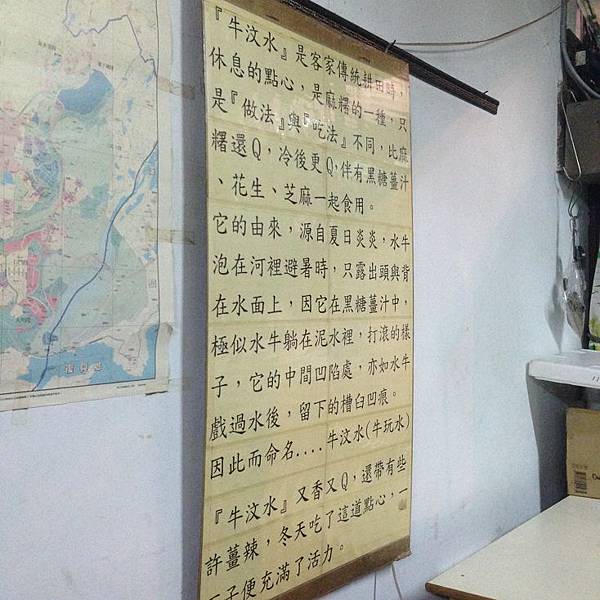 『牛汶水』是客家傳統耕田時，
休息的點心，是麻糬的一種，只
是『做法』與『吃法』不同，比麻
糬還Q，冷後更Q，伴有黑糖薑汁
、花生、芝麻一起食用。
它的由來，源自夏日炎炎，水牛
泡在河裡避暑時，只露出頭與背
在水面上，因它在黑糖薑汁中，
極似水牛躺在泥水裡，打滾的樣
子，它的中間凹陷處，亦如水牛
戲過水後，留下的槽臼凹痕。
因此而命名....牛汶水(牛玩水)
『牛汶水』又香又Q，還帶有些
許薑辣，冬天吃了這道點心，一
下子便充滿了活力。